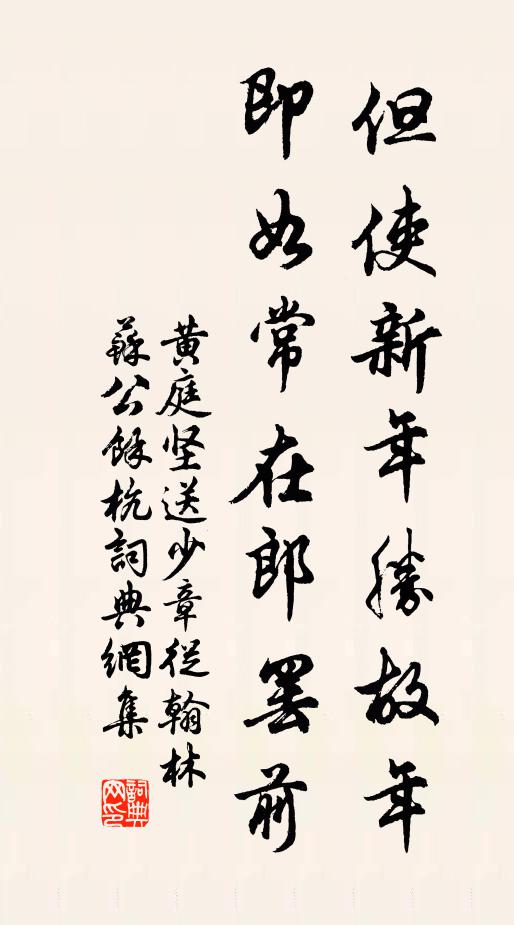 但使新年勝故年
即如常在郎罷前
黄庭坚送少章從翰林
蘇公餘杭詞典網集
詞典网印